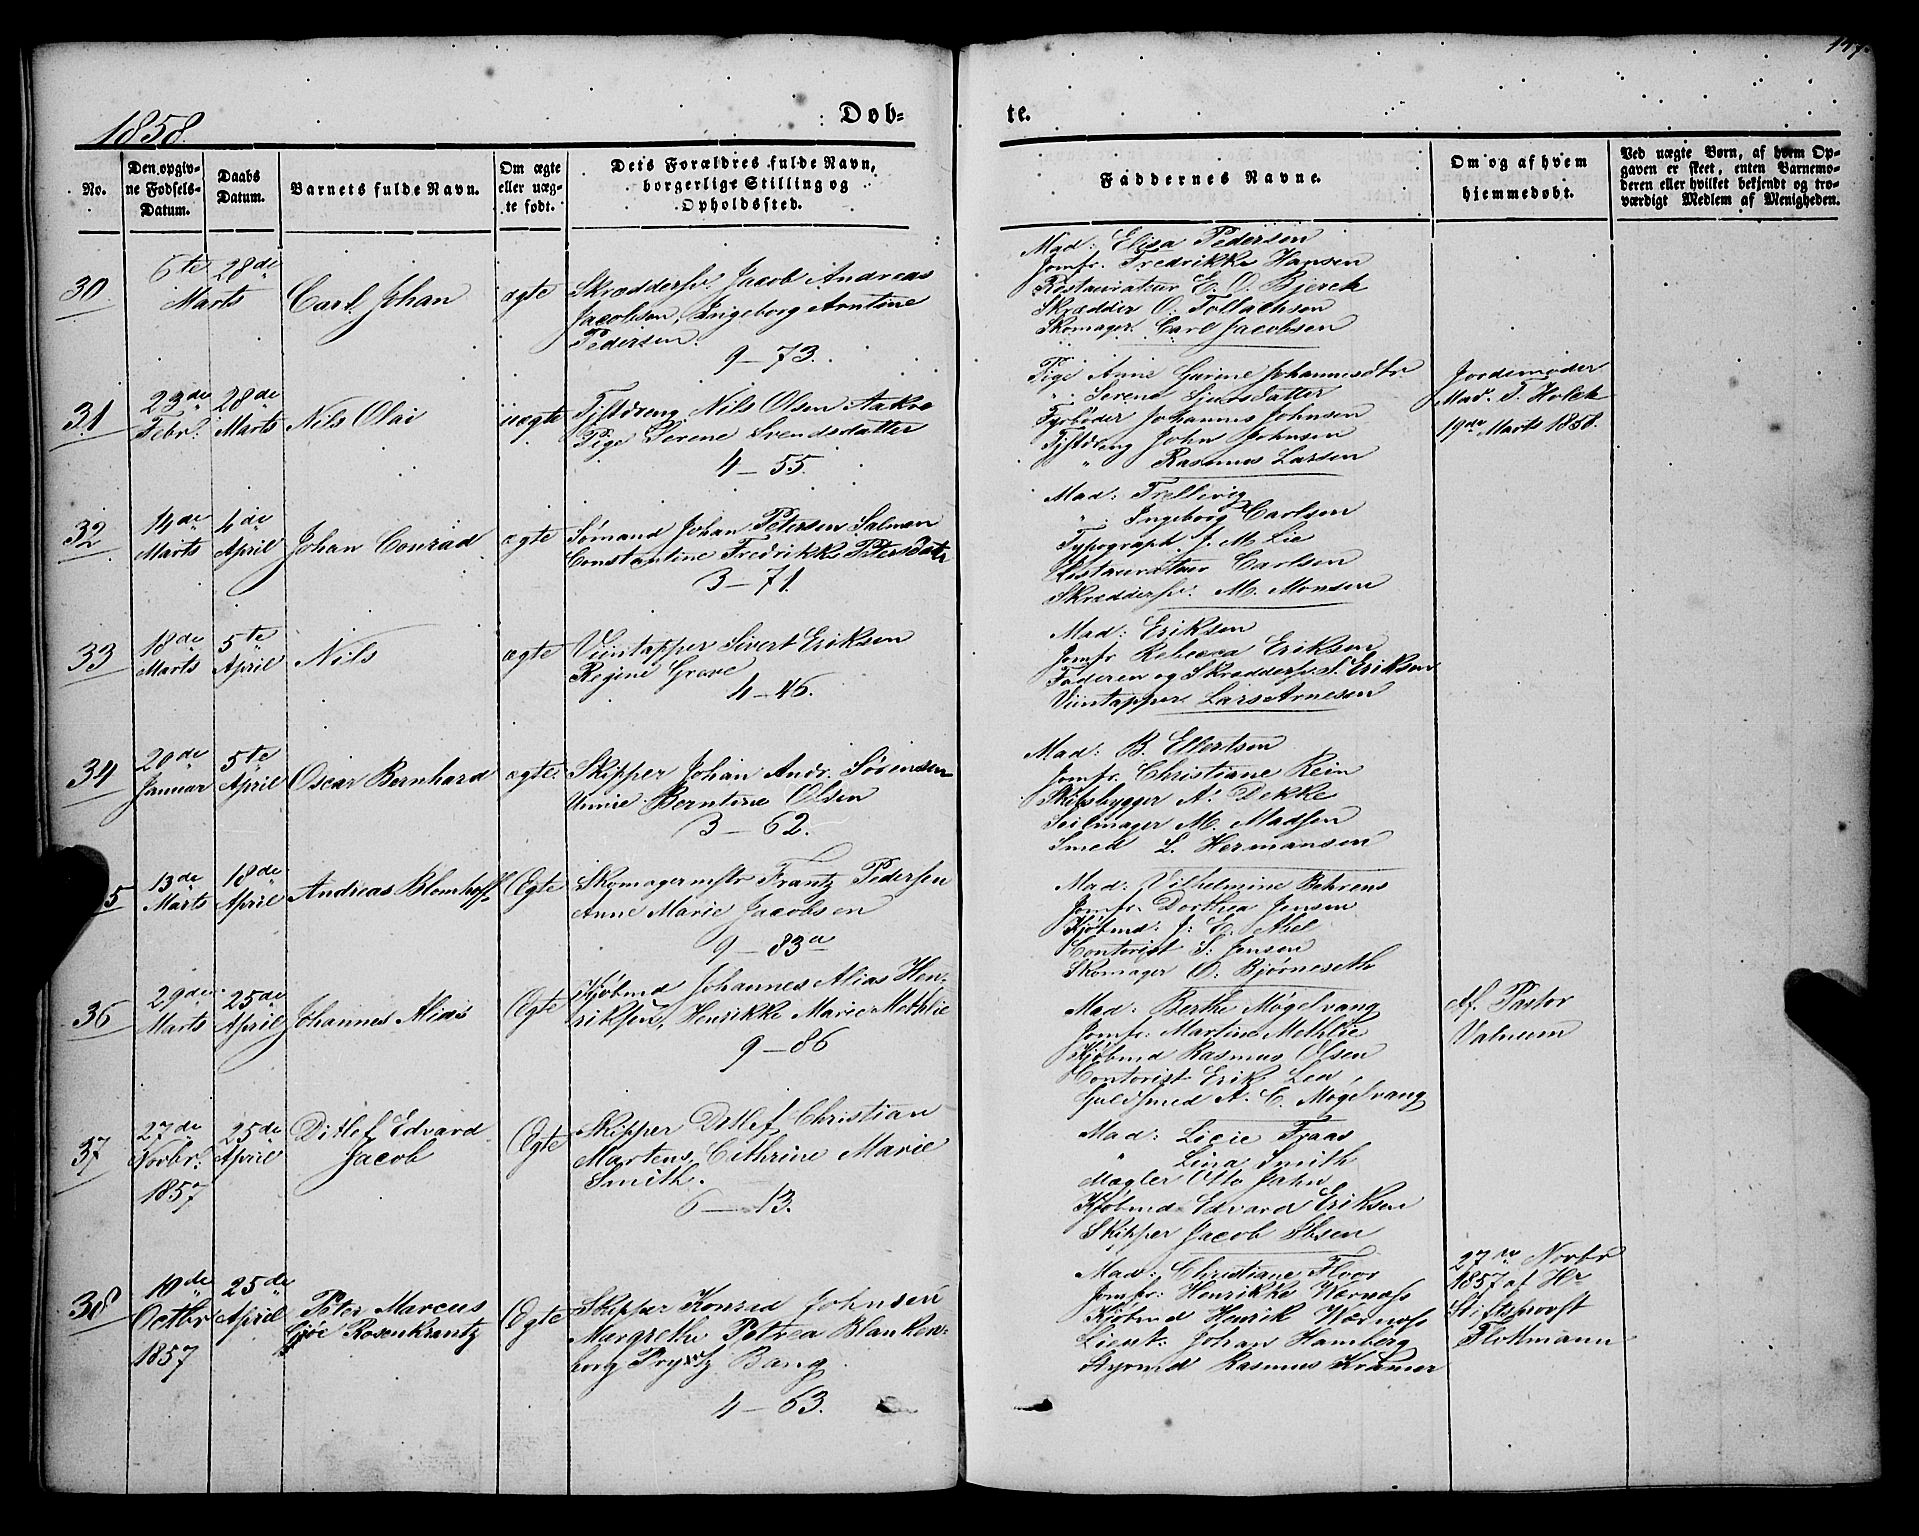 1858.
Døb-
te.
No.
Den opgivne Fødsels-Datum.
Daabs Datum.
Barnets fulde Navn.
Om ægte eller uægte født.
Dets Forældres fulde Navn, borgerlige Stilling og Opholdssted.
Faddernes Navne.
Om og af hvem hjemmedøbt.
Ved uægte Børn, af hvem Opgaven er skeet, enten Barnemoderen eller hvilket bekjendt og troværdigt Medlem af Menigheden.
30
6te Marts
28de
Carl Johan
ægte
Skræddersv. Jacob Andreas
Jacobsen, Ingeborg Arntine
Pedersen.
9 – 73.
Mad: Elisa Pedersen
Jomfr. Fredrikke Hansen
Restauratør E. O. Bjerck
Skrædder O. Tollachsen
Skomager Carl Jacobsen
31
23de Febr.
28de Marts
Nils Olai
uægte
Tjstdreng Nils Olsen Aakre
Pige Serene Svendsdatter
4 – 55.
Pige Anne Gurine Johannesdtr.
" Serene Sjursdatter
Fyrbøder Johannes Johnsen
Tjstdreng John Johnsen
" Rasmus Larsen
Jordemoder
Mad. T. Holck
19de Marts 1858.
32
14de Marts
4de April
Johan Conrad
ægte
Sømand Johan Petersen Salmen
Constantine Fredrikke Petersdatr
3 – 71.
Mad: Trellivig
" Ingeborg Carlsen
Typograph J. M. Lie
Restauratør Carlsen
Skræddersv. M. Monsen
33
18de Marts
5te April
Nils
ægte
Viintapper Sivert Eriksen
Regine Grave
4 – 46.
Mad: Eriksen
Jomfr Rebecca Eriksen
Faderen og Skræddersv. S. Eriksen
Viintapper Lars Arnesen
34
20de Januar
5te April
Oscar Bernhard
ægte
Skipper Johan Andr. Sørensen
Berntine Olsen
3 – 62.
Mad: B. Ellertsen
Jomfr. Christiane Rein
Skibsbygger A. Dekke
Seilmager M. Madsen
Smed L. Hermansen
35
13de Marts
18de April
Andreas Blomhoff
Ægte
Skomagermstr Frantz Pedersen
Anne Marie Jacobsen
9 – 83a
Mad: Vilhelmine Behrens
Jomfr. Dorthea Jensen
Kjøbmd: J. E. Abel
Contorist S. Jensen
Skomager O. Bjørneseth
36
29de Marts
25de April
Johannes Alias
Ægte
Kjøbmd Johannes Alias Hen-
riksen, Henrikke Marie Methlie
9 – 86
Mad: Berthe Møgelvang
Jomfr: Martine Methlie
Kjøbmd Rasmus Olsen
Contorist Erik Lea
Guldsmed A. C. Møgelvang
Af. Pastor
Valneum
37
27de Novbr. 1857
25de April
Ditlef Edvard
Jacob
Ægte
Skipper Detlef Christian
Martens, Cathrine Marie
Smith.
6 – 13.
Mad: Licie Fraas
" Lina Smith
Mægler Otto Jahn
Kjøbmd Edvard Eriksen
Skipper Jacob Ibsen
38
10de Octbr 1857
25de April
Peter Marcus
Gjøe Rosenkrantz
Ægte
Skipper Konrad Johnsen
Margrethe Petrea Blanken-
borg Prydtz Bang
4 – 63.
Mad: Christiane Floor
Jomfr: Henrikke Wernøss
Kjøbmd Henrik Wernøss
Lieut: Johan Hamberg
Styrmd Rasmus Kramer
27de Novbr
1857 af Hr
Stiftsprovst
Flottmann